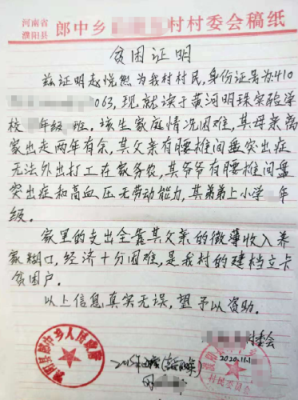 河南省
濮阳县 郎中乡 村村委会稿纸
贫困证明
兹证明赵悦然为我村村民,身份证号为410
063,现就读于黄河明珠实验学
校 年级 班。该生家庭情况困难,其母亲离
家出走两年有余,其父亲有腰椎间盘突出症
无法外出打工在家务农,其爷爷有腰椎间盘
突出症和高血压无劳动能力,其弟弟上小学
年级。
家里的支出全靠其父亲的微薄收入养
家糊口,经济十分困难,是我村的建档立卡
贫困户。
以上信息真实无误,望予以资助。
委会
2020.11.1
郎中乡人民政府